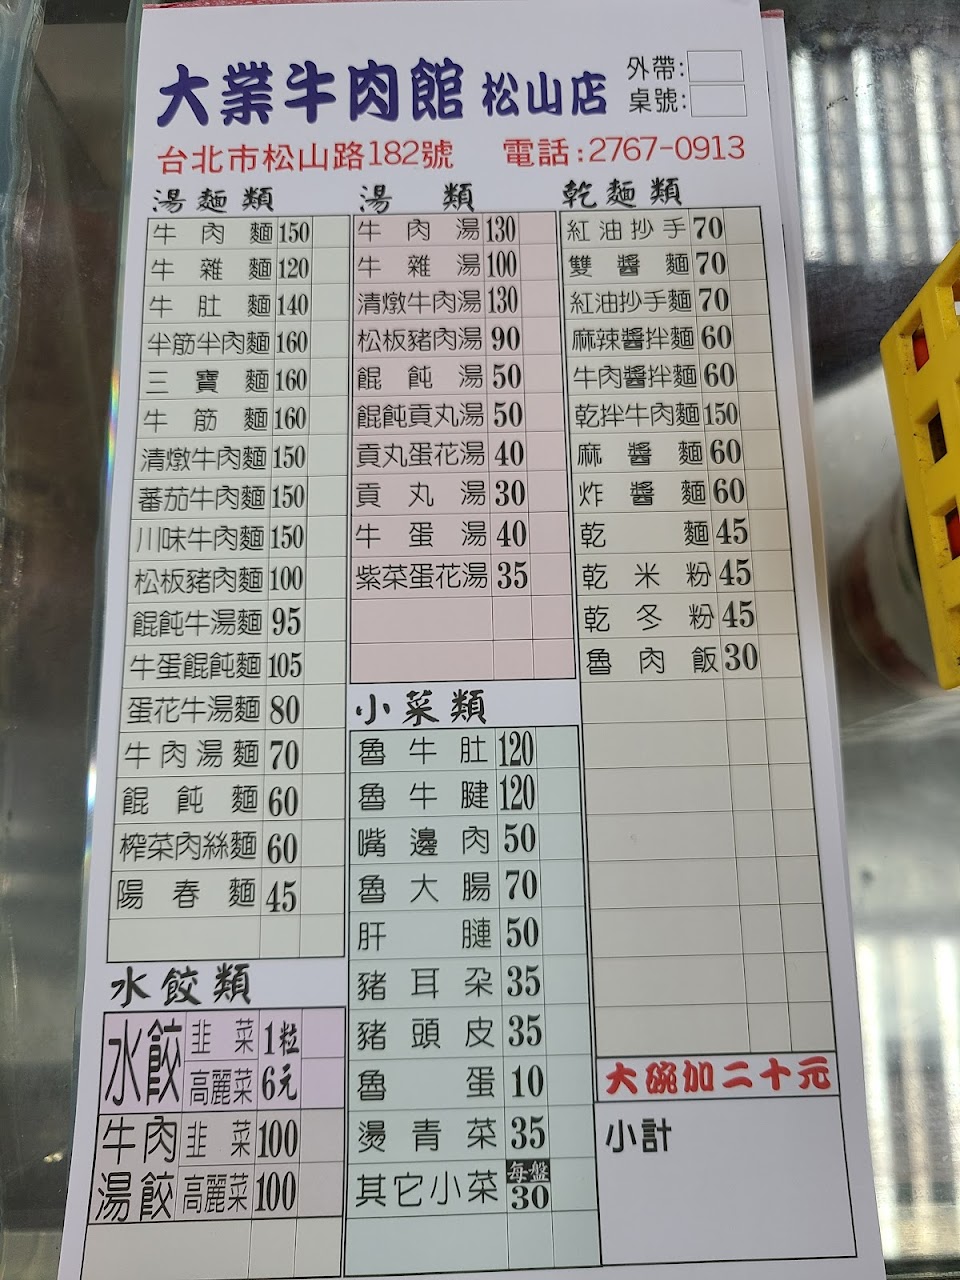 大業牛肉館 松山店
外帶:
桌號:
台北市松山路182號 電話:2767-0913
湯麵類
牛肉麵 150
牛雜麵 120
牛肚麵 140
半筋半肉麵 160
三寶麵 160
牛筋麵 160
清燉牛肉麵 150
蕃茄牛肉麵 150
川味牛肉麵 150
松板豬肉麵 100
餛飩牛湯麵 95
牛蛋餛飩麵 105
蛋花牛湯麵 80
牛肉湯麵 70
餛飩麵 60
榨菜肉絲麵 60
陽春麵 45
水餃類
水餃 韭菜 高麗菜 1粒6元
牛肉湯餃 韭菜 100
高麗菜 100
湯類
牛肉湯 130
牛雜湯 100
清燉牛肉湯 130
松板豬肉湯 90
餛飩湯 50
餛飩貢丸湯 50
貢丸蛋花湯 40
貢丸湯 30
牛蛋湯 40
紫菜蛋花湯 35
小菜類
魯牛肚 120
魯牛腱 120
嘴邊肉 50
魯大腸 70
肝腱 50
豬耳朶 35
豬頭皮 35
魯蛋 10
燙青菜 35
其它小菜 每盤30
乾麵類
紅油抄手 70
雙醬麵 70
紅油抄手麵 70
麻辣醬拌麵 60
牛肉醬拌麵 60
乾拌牛肉麵 150
麻醬麵 60
炸醬麵 60
乾麵 45
乾米粉 45
乾冬粉 45
魯肉飯 30
大碗加二十元
小計